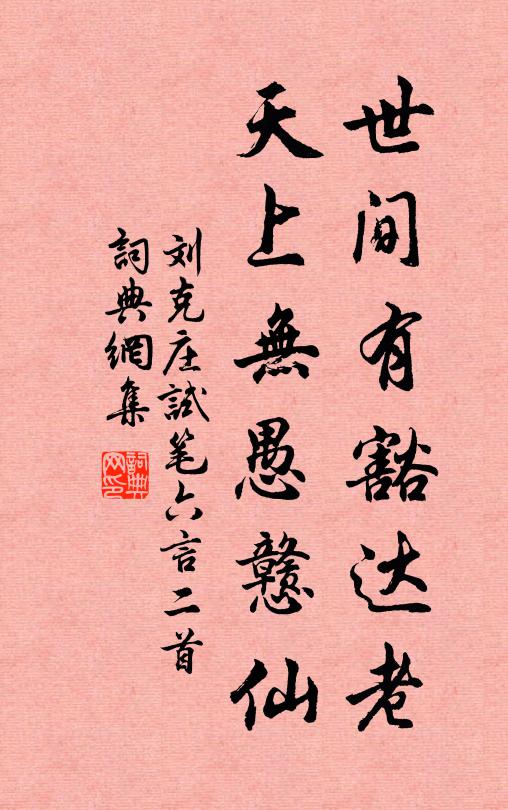 世间有豁达老
天上無愚戆仙
刘克庄試笔六言二首
詞典網集
詞典网印